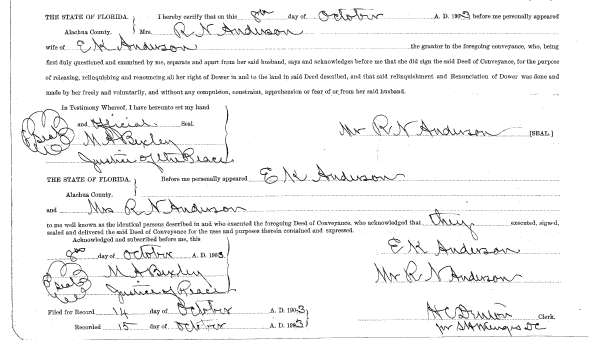 THE STATE OF FLORIDA. } I hereby certify that on this 8th day of October A. D. 1903 before me personally appeared
Alachua County. Mrs. R N Anderson
wife of E K Anderson the grantor in the foregoing conveyance, who, being
first duly questioned and examined by me, separate and apart from her said husband, says and acknowledges before me that she did sign the said Deed of Conveyance, for the purpose
of releasing, relinquishing and renouncing all her right of Dower in and to the land in said Deed described, and that said relinquishment and Renunciation of Dower was done and
made by her freely and voluntarily, and without any compulsion, constraint, apprehension or fear of or from her said husband.
In Testimony Whereof, I have hereunto set my hand
and official Seal.
Seal
M A Bexley
Justice of the Peace
Mrs R N Anderson [SEAL.]
THE STATE OF FLORIDA. } Before me personally appeared E K Anderson
Alachua County.
and Mrs R N Anderson
to me well known as the identical persons described in and who executed the foregoing Deed of Conveyance, who acknowledged that they executed, signed,
sealed and delivered the said Deed of Conveyance for the uses and purposes therein contained and expressed.
Acknowledged and subscribed before me, this
8th day of October A. D. 1903
Seal
M A Bexley
Justice of Peace
E K Anderson
Mrs R N Anderson
Filed for Record 14 day of October A. D. 1903
Recorded 15 day of October A. D. 1903
H C Denton Clerk.
per D C